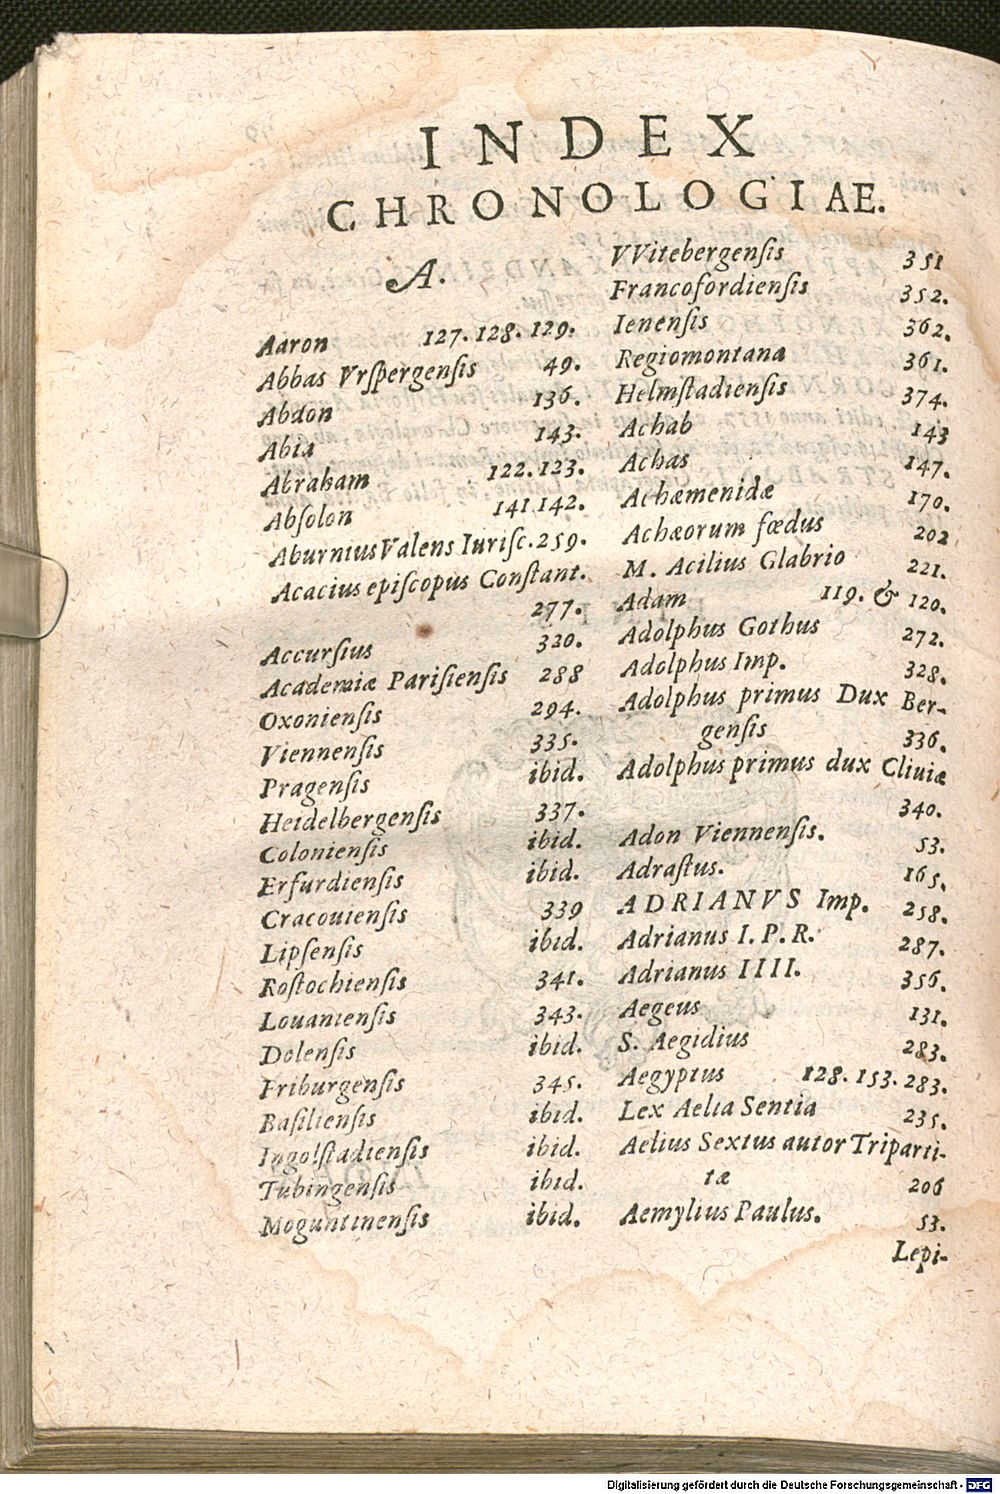 INDEX
CHRONOLOGIAE.
A.
Aaron 127. 128. 129.
Abbas Vrſpergenſis 49.
Abdon 136.
Abia 143.
Abraham 122. 123.
Abſolon 141 142.
Aburnius Valens Iuriſc. 259.
Acacius epiſcopus Conſtant.
277.
Accurſius 320.
Academiæ Pariſienſis 288
Oxonienſis 294.
Viennenſis 335.
Pragenſis ibid.
Heidelbergenſis 337.
Colonienſis ibid.
Erfurdienſis ibid.
Cracouienſis 339
Lipſenſis ibid.
Roſtochienſis 341.
Louanienſis 343.
Dolenſis ibid.
Friburgenſis 345.
Baſilienſis ibid.
Ingolſtadienſis ibid.
Tubingenſis ibid.
Moguntinenſis ibid.
VVitebergenſis 351
Francofordienſis 352.
Ienenſis 362.
Regiomontana 361.
Helmſtadienſis 374.
Achab 143
Achas 147.
Achæmenidæ 170.
Achæorum fœdus 202
M. Acilius Glabrio 221.
Adam 119. & 120.
Adolphus Gothus 272.
Adolphus Imp. 328.
Adolphus primus Dux Ber-
genſis 336.
Adolphus primus dux Cliuiæ
340.
Adon Viennenſis. 53.
Adraſtus. 165.
ADRIANVS Imp. 258.
Adrianus I. P. R. 287.
Adrianus IIII. 356.
Aegeus 131.
S. Aegidius 283.
Aegyptus 128. 153. 283.
Lex Aelia Sentia 235.
Aelius Sextus autor Triparti-
tæ 206
Aemylius Paulus. 53.
Lepi-
Digitalisierung gefördert durch die Deutsche Forschungsgemeinschaft - DFG